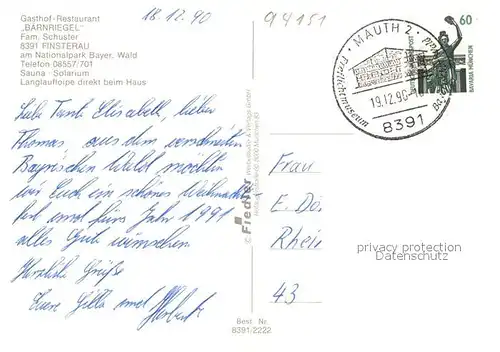 Gasthof-Restaurant
„BÄRNRIEGEL"
Fam. Schuster
8391 FINSTERAU
am Nationalpark Bayer. Wald
Telefon 08557/701
Sauna · Solarium
Langlaufloipe direkt beim Haus
18.12.90
94151
Liebe Tante Elisabeth, lieber
Thomas, aus dem verschneiten
Bayrischen Wald möchten
wir Euch ein schönes Weihnachts-
fest und fürs Jahr 1991
alles Gute wünschen
Herzliche Grüße
Eure Gitta und Herbert
© Fiedler
Best. Nr.
8391/2222
MAUTH 2
Freilichtmuseum
19.12.90
8391
60
BAVARIA MÜNCHEN
Frau
E. Do
Rhein
43
privacy protection
Datenschutz